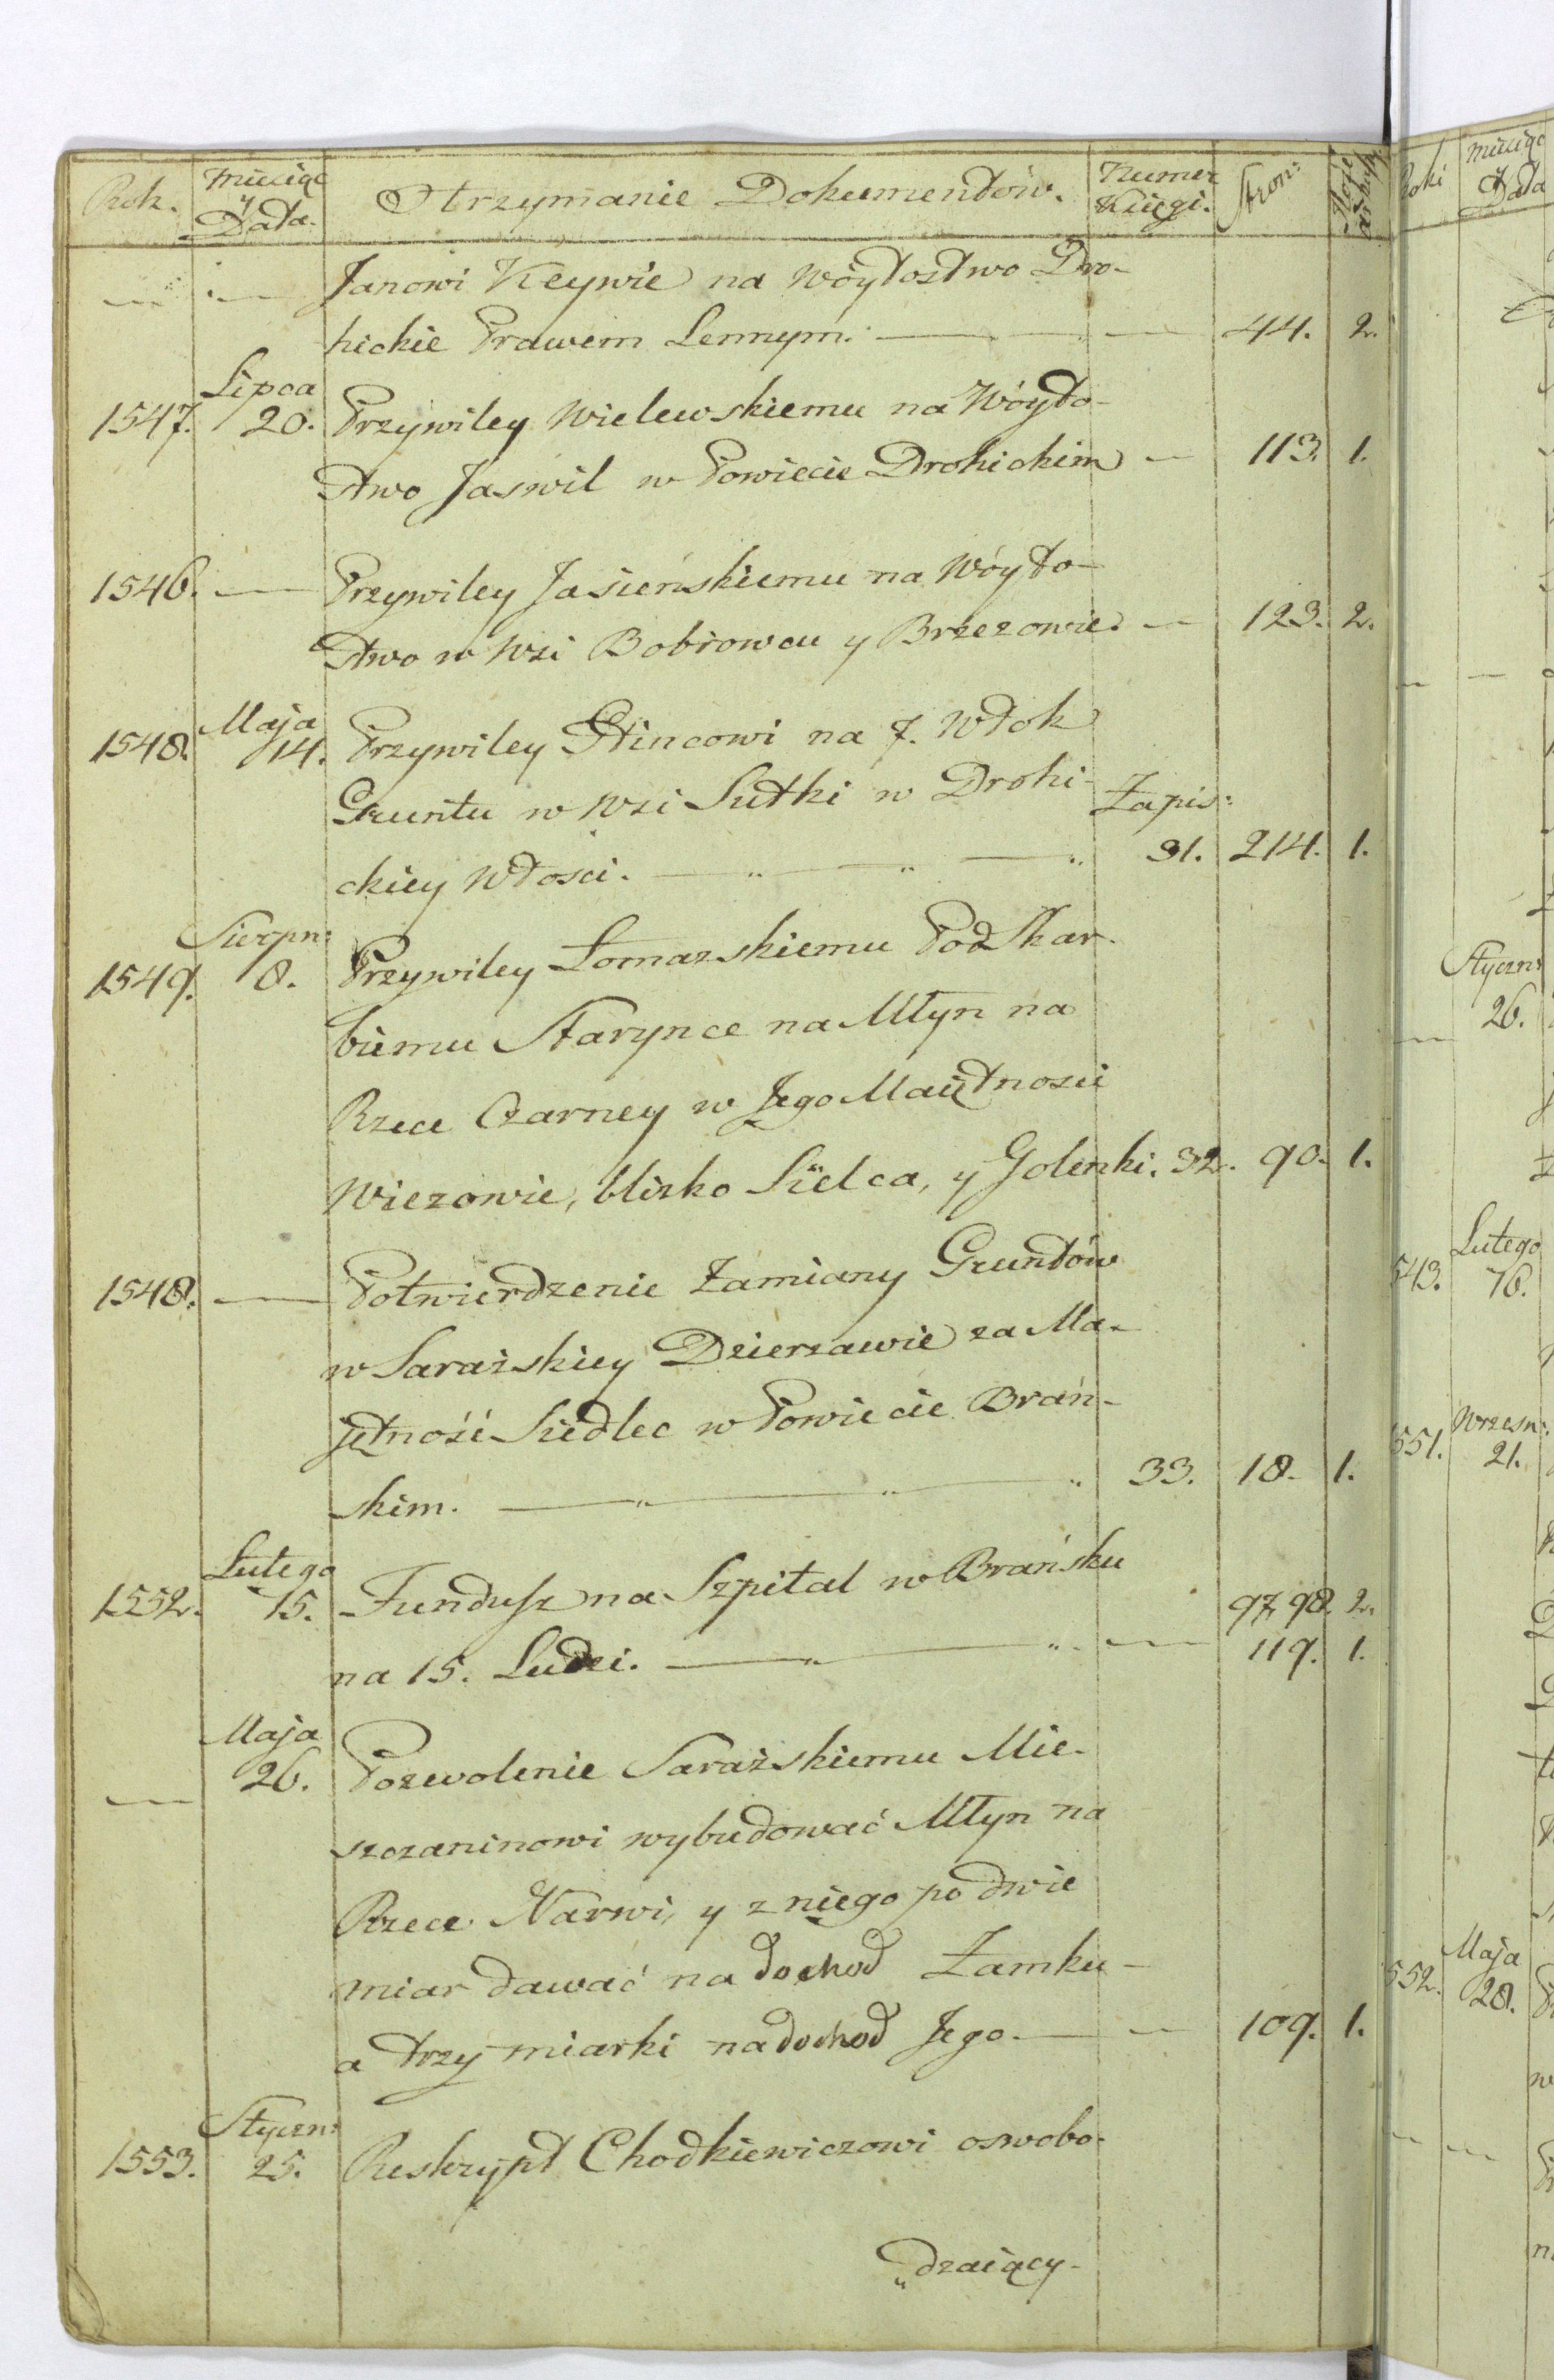 Rok. Miesiąc y Data. Otrzymanie Dokumentów. Numer Księgi. Stron:
Janowi Keywie na Wóytostwo Dro-
hickie Prawem Lennym. 44. 2.
1547. Lipca 20. Przywiley Wielewskiemu na Wóyto-
stwo Jaswil w Powiecie Drohickim — 113. 1.
1546. — Przywiley Jasieńskiemu na Wóyto-
stwo w Wsi Bobrowcu y Brzezowie. — 123. 2.
1548. Maja 14. Przywiley Glincowi na 7. Włok
Gruntu w Wsi Sutki w Drohi- Zapis:
ckiey Włości. 31. 214. 1.
1549. Sierpn: 8. Przywiley Łomazskiemu Podskar-
biemu Starynce na Młyn na
Rzece Czarney w Jego Maiętnosci
Wiezowie, blizko Sielca, y Golenki. 32. 90. 1.
1548. — Potwierdzenie Zamiany Gruntów
w Sarazskiey Dzierzawie za Ma-
jętność Siedlec w Powiecie Brań-
skim. 33. 18. 1.
1552. Lutego 15. Fundusz na Szpital w Brańsku 97. 98. 2.
na 15. Ludzi. — 119. 1.
— Maja 26. Pozwolenie Sarazskiemu Mie-
szczaninowi wybudować Młyn na
Rzece Narwi, y z niego po dwie
miar dawać na dochod Zamku
a trzy miarki na dochod Jego — 109. 1.
1553. Styczn: 25. Reskrypt Chodkiewiczowi oswobo-
„dzaiący-
Roki Miesiąc y Data
Styczn:
26.
Lutego
543. 16.
Wrzesn:
551. 21.
Maja
552. 28.